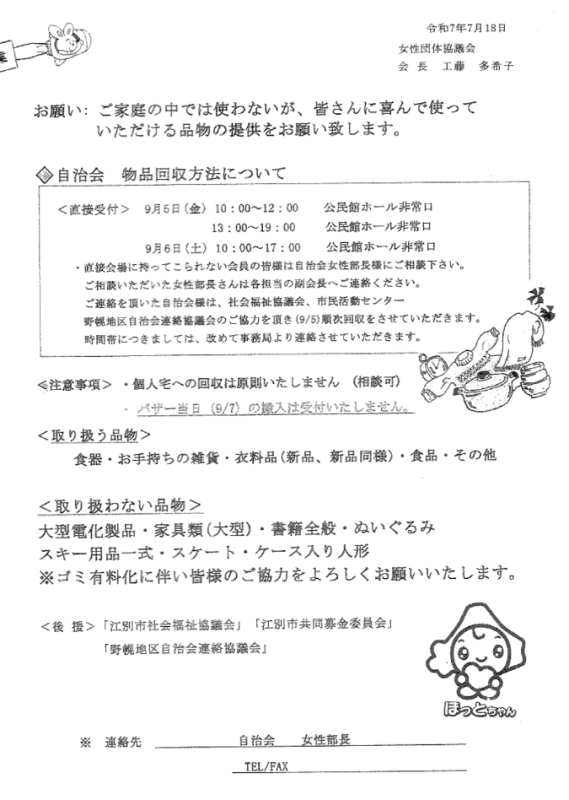 業
令和7年7月18日
女性団体協議会
会 長 工藤 多希子
お願い: ご家庭の中では使わないが、皆さんに喜んで使って
いただける品物の提供をお願い致します。
◈自治会 物品回収方法について
<直接受付> 9月5日(金) 10:00~12:00 公民館ホール非常口
13:00~19:00 公民館ホール非常口
9月6日(土) 10:00~17:00 公民館ホール非常口
・直接会場に持ってこられない会員の皆様は自治会女性部長様にご相談下さい。
ご相談いただいた女性部長さんは各担当の副会長へご連絡ください。
ご連絡を頂いた自治会様は、社会福祉協議会、市民活動センター
野幌地区自治会連絡協議会のご協力を頂き(9/5)順次回収をさせていただきます。
時間帯につきましては、改めて事務局より連絡させていただきます。
<注意事項> ・個人宅への回収は原則いたしません (相談可)
・ バザー当日 (9/7) の搬入は受付いたしません。
<取り扱う品物>
食器・お手持ちの雑貨・衣料品(新品、新品同様)・食品・その他
<取り扱わない品物>
大型電化製品・家具類(大型)・書籍全般・ぬいぐるみ
スキー用品一式・スケート・ケース入り人形
※ゴミ有料化に伴い皆様のご協力をよろしくお願いいたします。
<後 援>「江別市社会福祉協議会」「江別市共同募金委員会」
「野幌地区自治会連絡協議会」
ほっとちゃん
※ 連絡先 自治会 女性部長
TEL/FAX